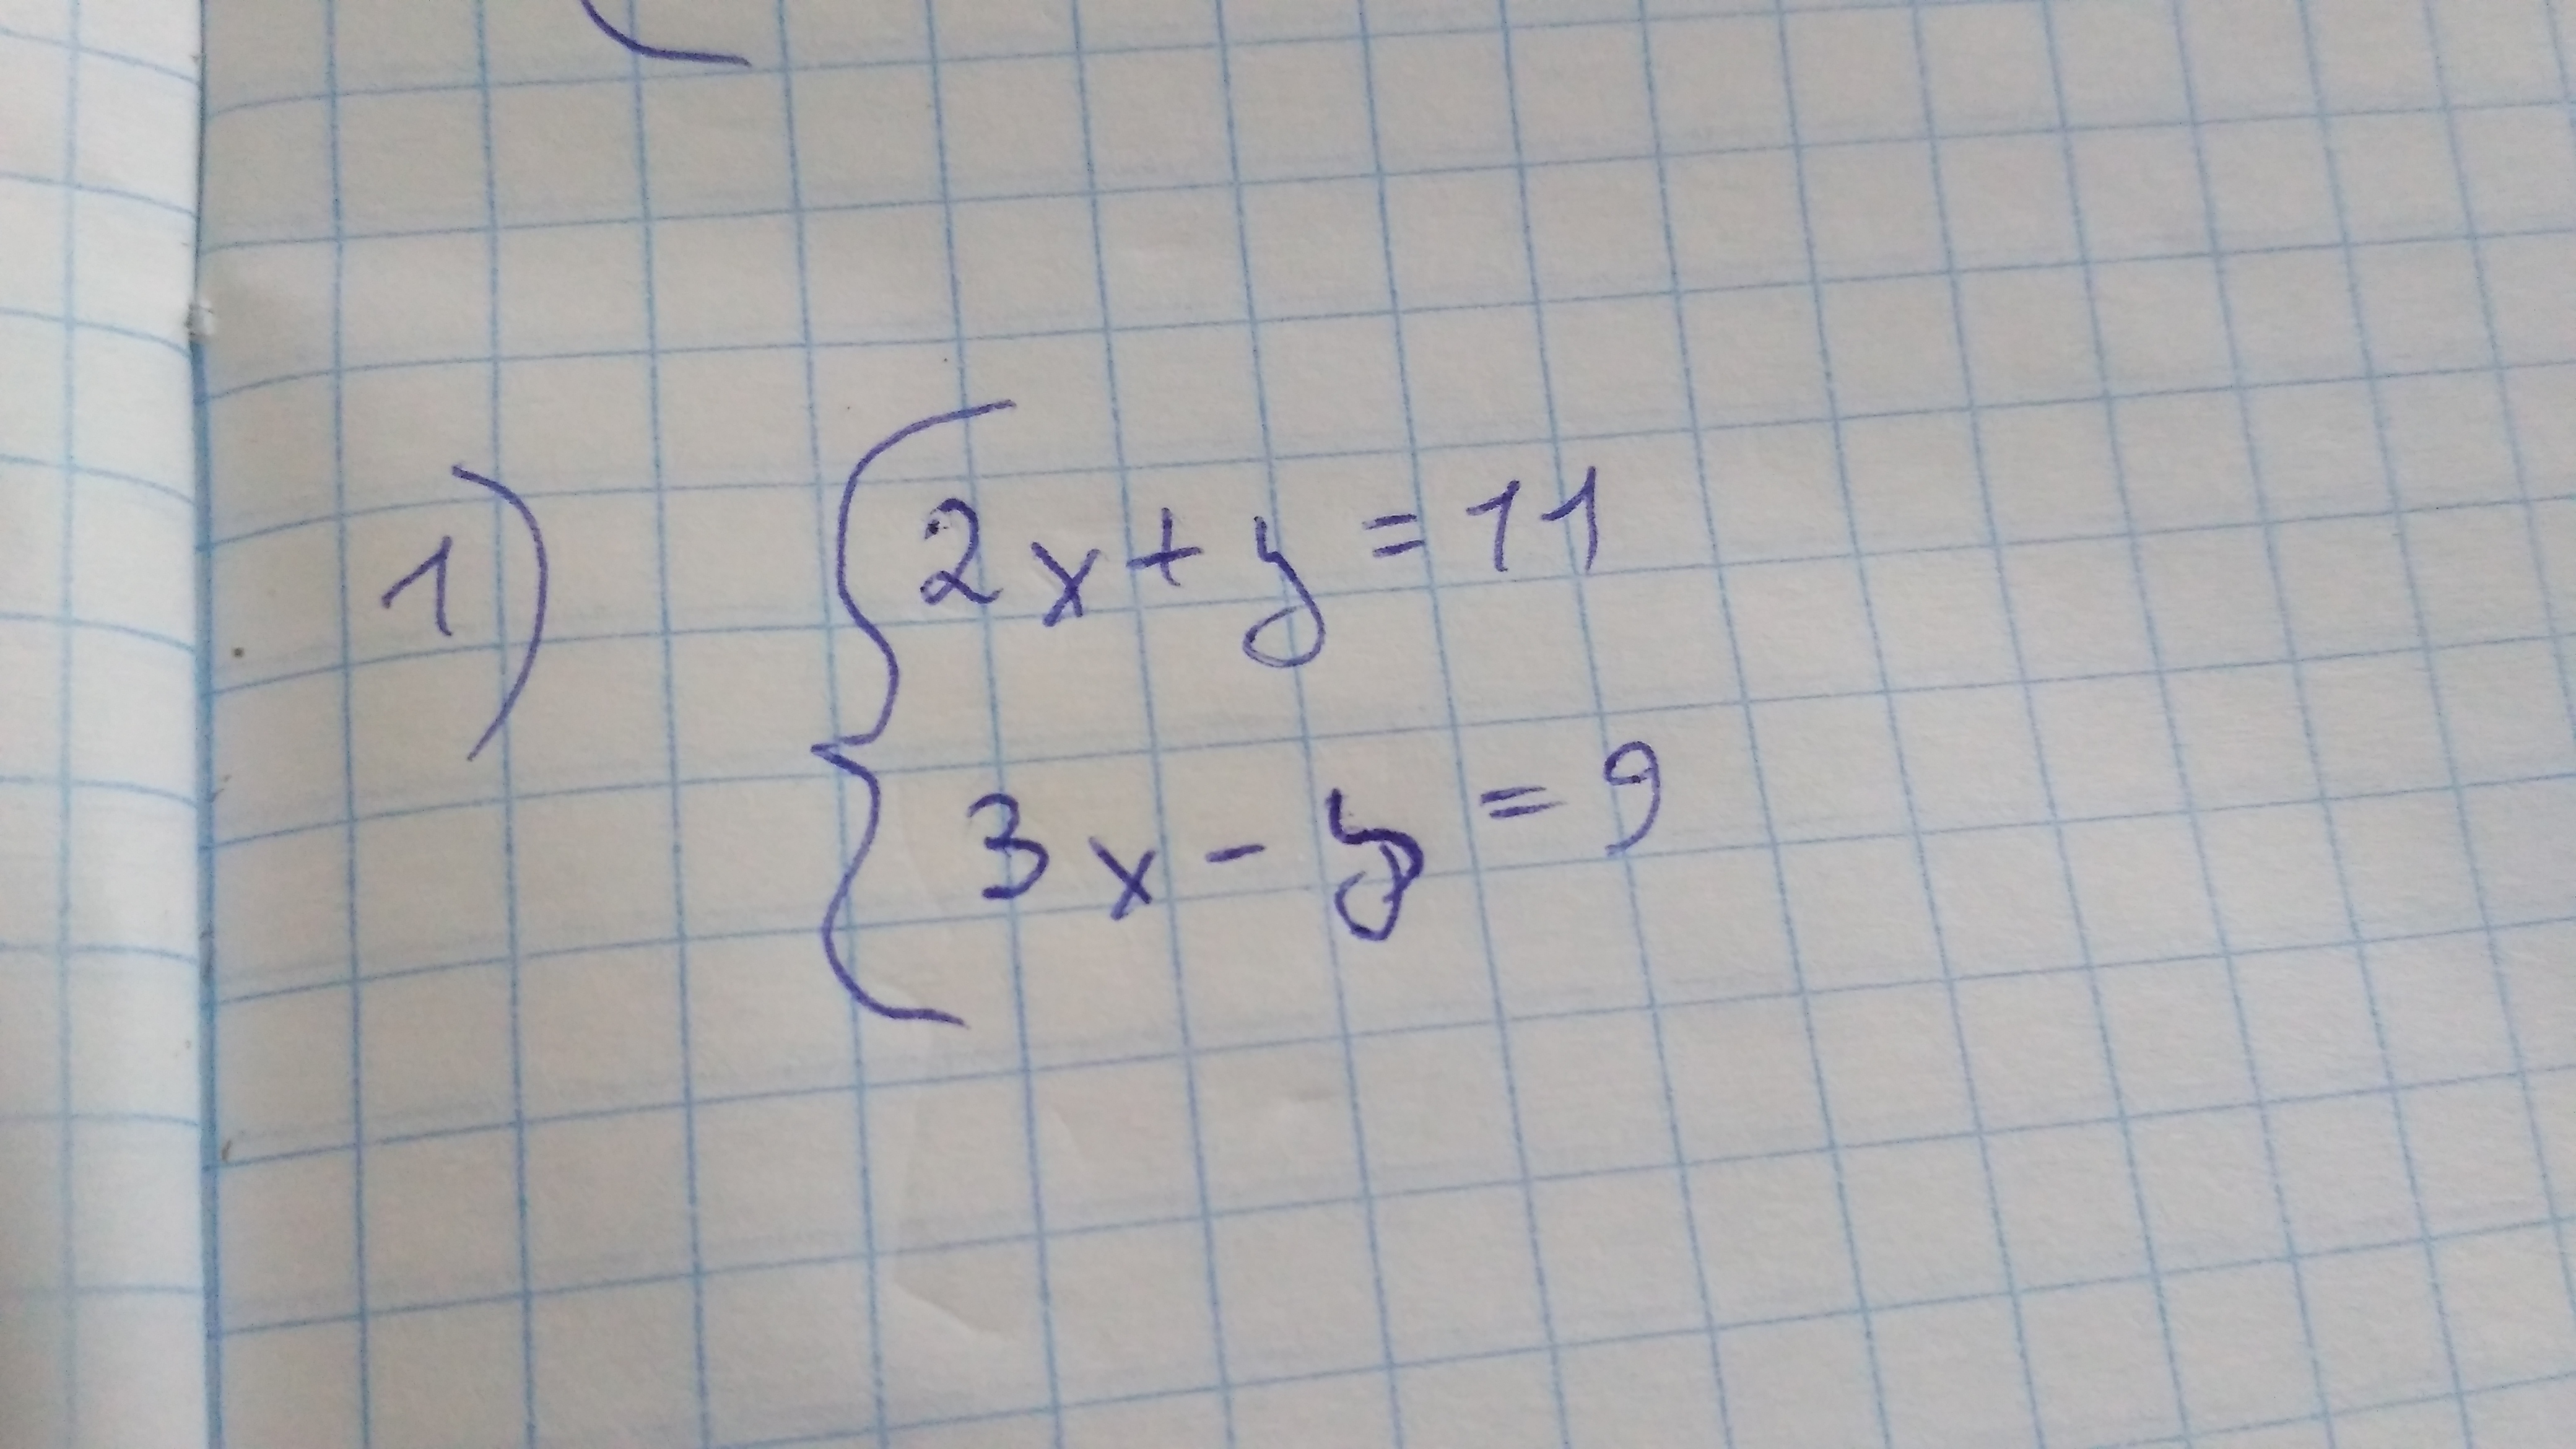 1) { 2x + y = 11
3x - y = 9